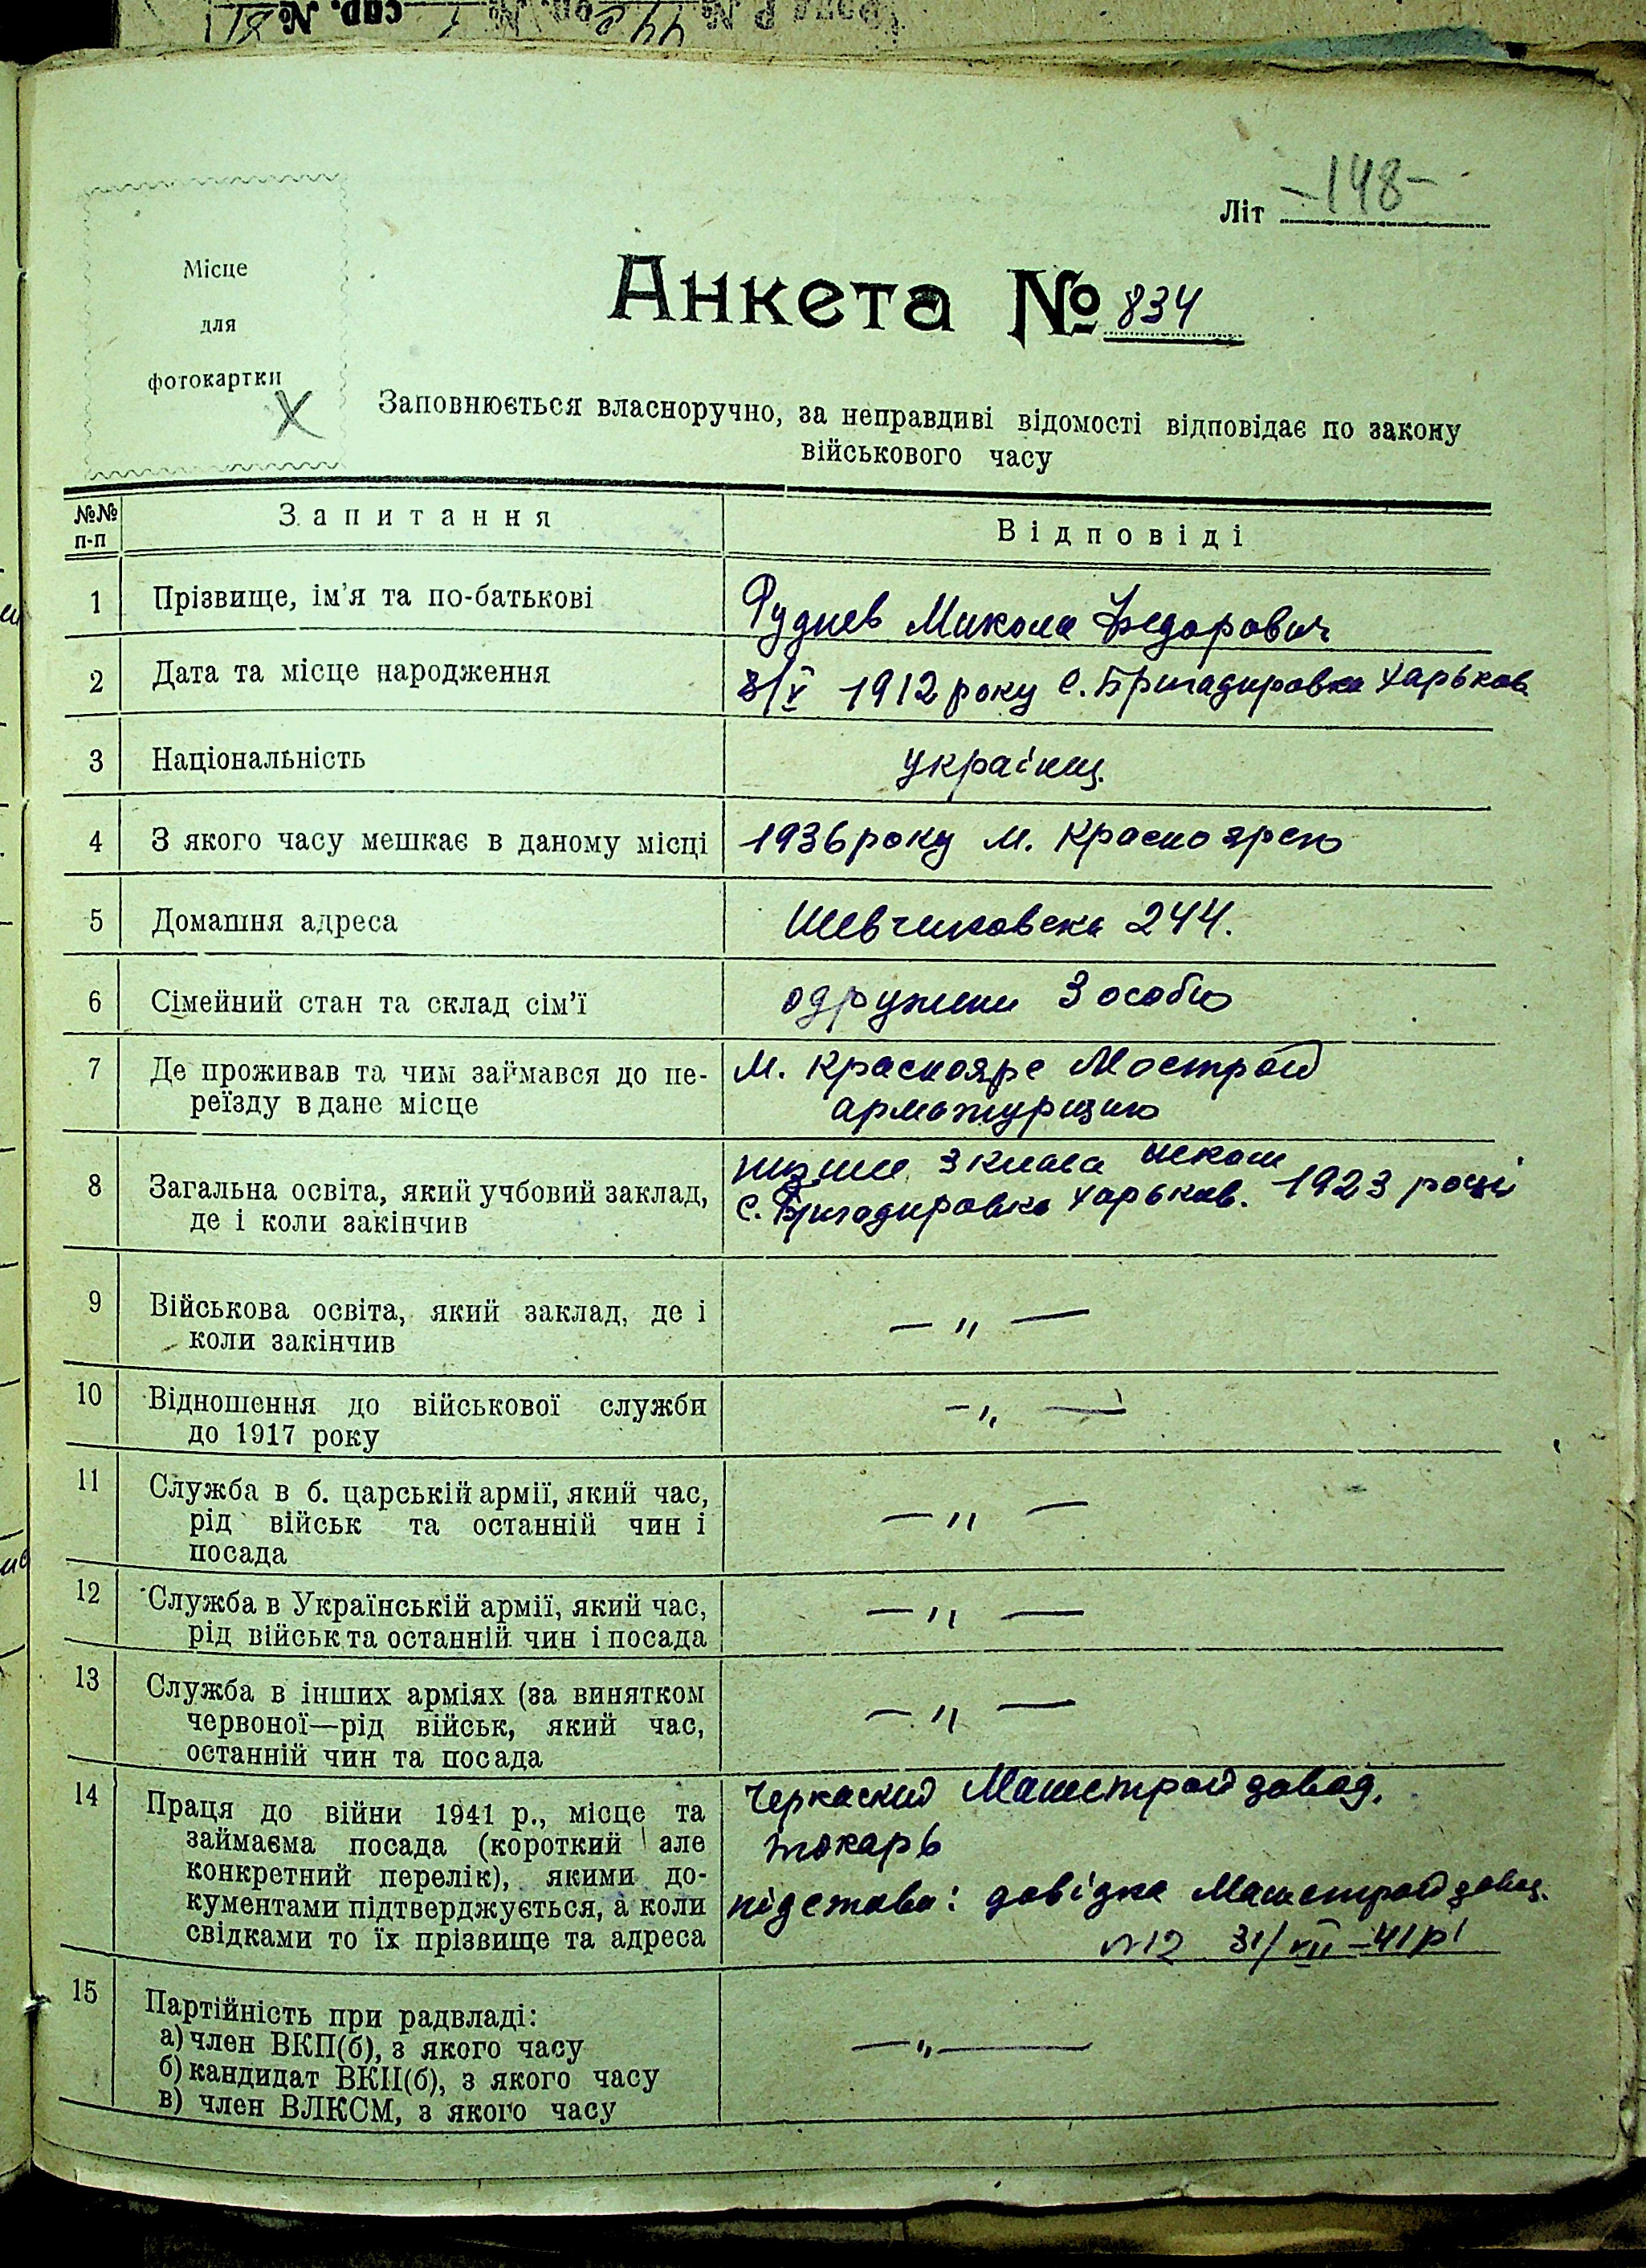 Літ -148-
Місце
для
фотокартки
Анкета № 834
Заповнюється власноручно, за неправдиві відомості відповідає по закону
військового часу
№№ п-п Запитання Відповіді
1 Прізвище, ім'я та по-батькові Руднев Микола Федорович
2 Дата та місце народження 8/V 1912 року с. Бригадировка Харьков.
3 Національність українц.
4 З якого часу мешкає в даному місці 1936 року м. Красноярско
5 Домашня адреса Шевченковска 244.
6 Сімейний стан та склад сім'ї одружени 3 особи
7 Де проживав та чим займався до пе- м. Красноярс Мострой
реїзду в дане місце арматурщико
8 Загальна освіта, який учбовий заклад, низше 3 класа школи
де і коли закінчив с. Бригадировка Харьков. 1923 році
9 Військова освіта, який заклад, де і — „ —
коли закінчив
10 Відношення до військової служби — „ —
до 1917 року
11 Служба в б. царській армії, який час, — „ —
рід військ та останній чин і
посада
12 Служба в Українській армії, який час, — „ —
рід військ та останній чин і посада
13 Служба в інших арміях (за винятком — „ —
червоної—рід військ, який час,
останній чин та посада
14 Праця до війни 1941 р., місце та Черкаский Машстройзавод.
займаєма посада (короткий але токарь
конкретний перелік), якими до-
кументами підтверджується, а коли підстава: довідка Машстройзавод.
свідками то їх прізвище та адреса №12 31/VII-41р
15 Партійність при радвладі: — „ —
а) член ВКП(б), з якого часу
б) кандидат ВКП(б), з якого часу
в) член ВЛКСМ, з якого часу